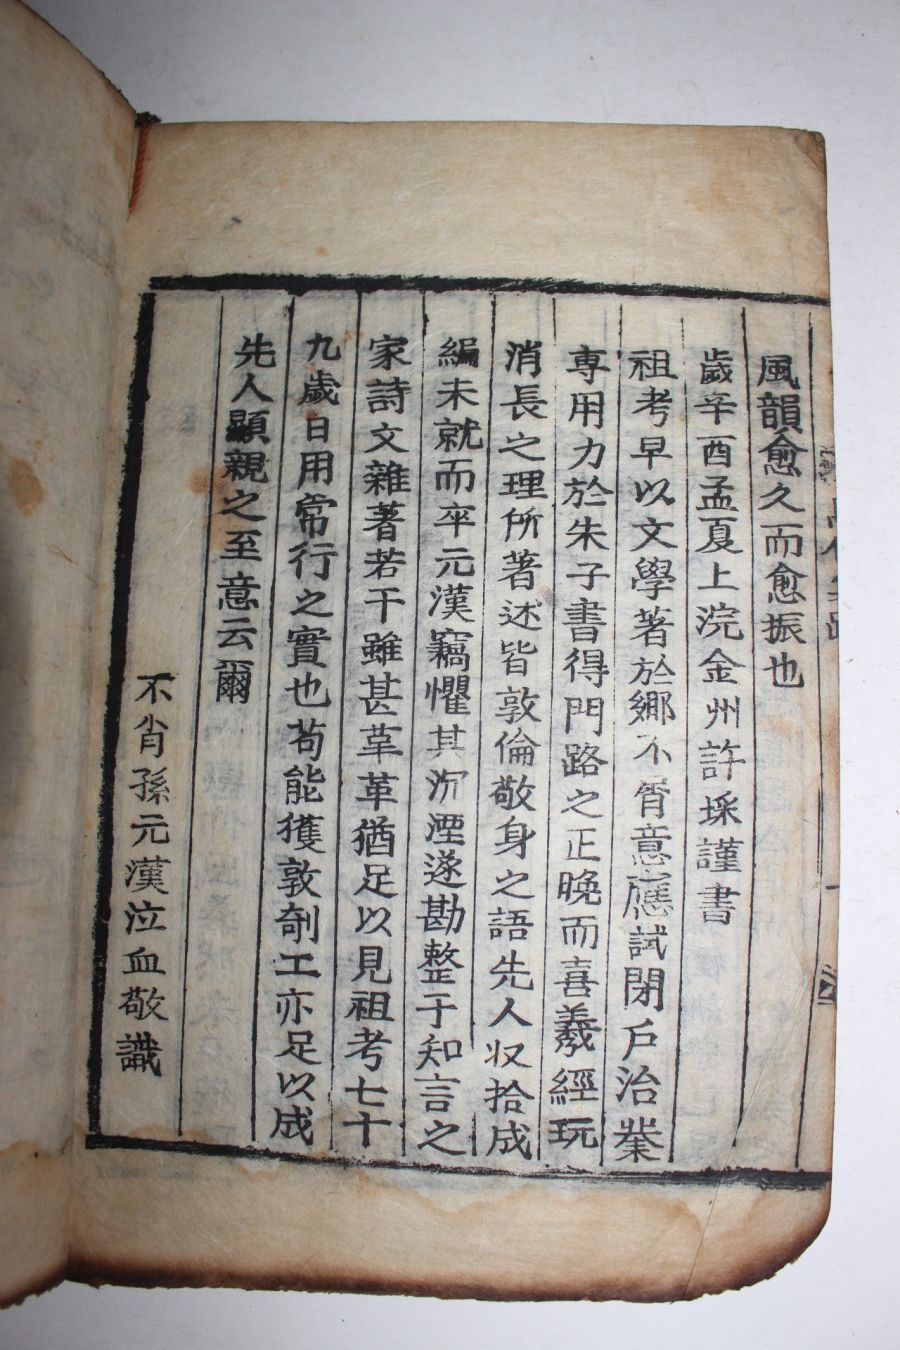 風韻愈久而愈振也
歲辛酉孟夏上浣金州許埰謹書
祖考早以文學著於鄉不肯意應試閉戶治業
專用力於朱子書得門路之正晩而喜羲經玩
消長之理所著述皆敦倫敬身之語先人収拾成
編未就而卒元漢竊懼其沉湮遂勘整于知言之
家詩文雜著若干雖甚草革猶足以見祖考七十
九歲日用常行之實也苟能獲敦剞工亦足以成
先人顯親之至意云爾
不肖孫元漢泣血敬識